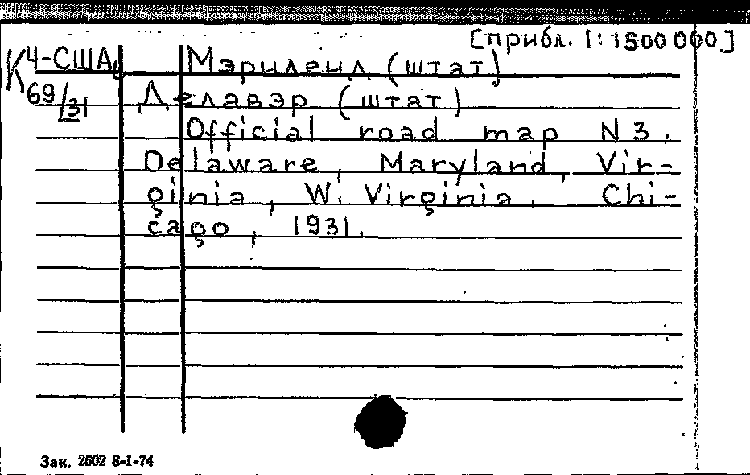 [прибл. 1:1500 000.]
К 4-США Мэриленд (штат)
69/31 Делавэр (штат)
Official road map N 3.
Delaware, Maryland, Vir-
ginia, W. Virginia. Chi-
cago, 1931.
Зак. 2602 8-I-74